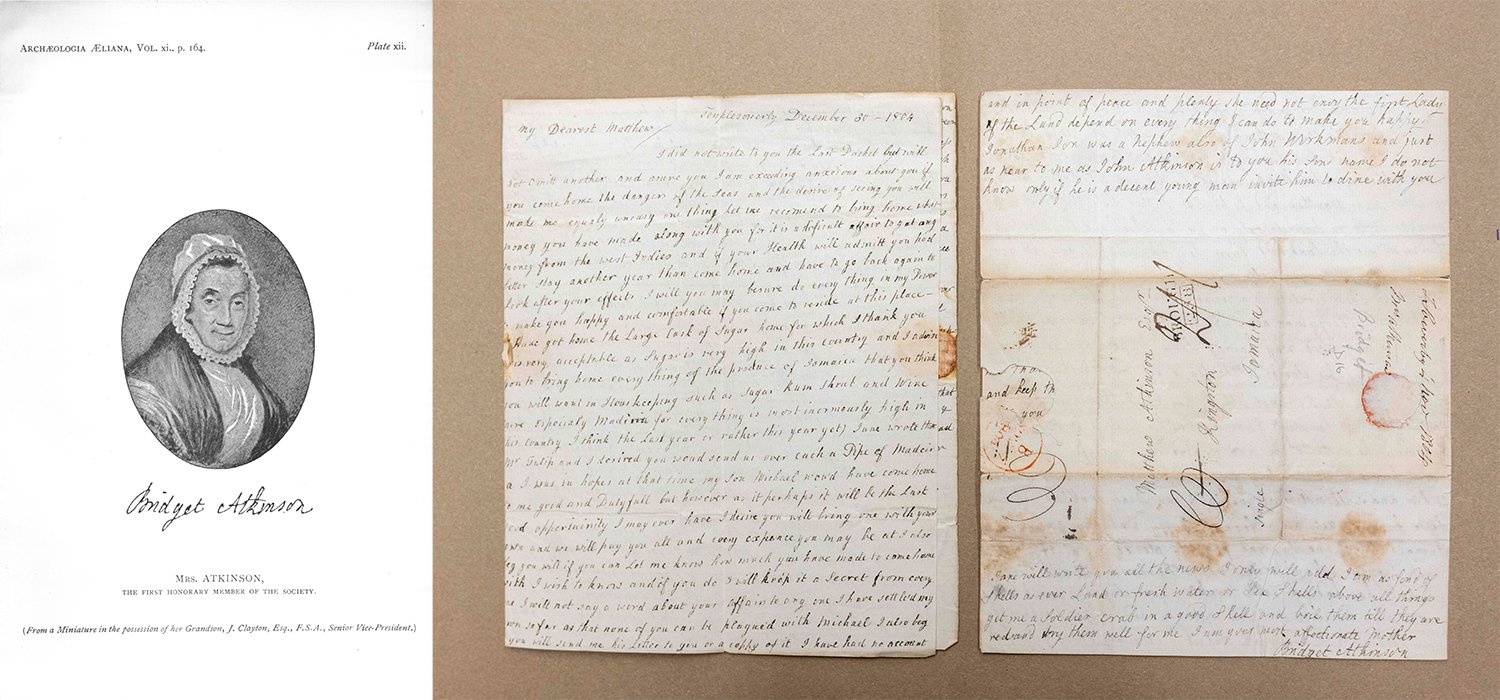 ARCHÆOLOGIA ÆLIANA, VOL. xi., p. 164.
Plate xii.
Bridget Atkinson
MRS. ATKINSON,
THE FIRST HONORARY MEMBER OF THE SOCIETY.
(From a Miniature in the possession of her Grandson, J. Clayton, Esq., F.S.A., Senior Vice-President.)
Templesowerby December 30 - 1804
My Dearest Matthew/
I did not write to you the Last Packet but will
not omitt another and asure you I am exceeding anxcious about you if
you come home the danger of the Seas and the desire of seeing you will
made me equaly uneasy one thing Let me recomend to bring home what
money you have made along with you for it is a deficult affair to get any
money from the west Indies and if your Health will admitt you had
better stay another year than come home and have to go back again to
Look after your effects I will you may besure do every thing in my Power
make you happy and comfortable if you come to reside at this place -
Have got home the Large Cask of Sugar home for which I thank you
is very acceptable as Sugar is very high in this Country and I desire
you to bring home everything of the produce of Jamaica that you think
you will want in Houskeeping such as Sugar Rum Shrub and Wine
Especialy Madiria for everything is most inormously high in
his Country I think the Last year or rather this year yet Jane wrote
Mr Tulip and I desired you woud send us over each a Pipe of Madeir
I was in hopes at that time my Son Michael woud have come home
me good and Dutyfull but however as it perhaps it will be the Last
good oppertuinity I may ever have I desire you will bring one with your
own and we will pay you all and every expence you may be at I also
beg you will if you can Let me know how much you have made to come home
with I wish to know and if you do I will keep it a Secret from every
I will not say a word about your affairs to any one I have settled my
so far as that none of you can be plagued with Michael I also beg
you will send me his Letter to you or a copy of it I have had no account
and in point of peace and plenty she need not envy the first Lady
of the Land depend on every thing I can do to make you happy
Jonathan Ion was a Nephew also of John Workmans and just
as near to me as John Atkinson is to you his Sons name I do not
know only if he is a decent young man invite him to dine with you
and keep th
you
Matthew Atkinson Esqr
Kingston
Jamaica
Single
Bridget
Jane will write you all the news I only will add I am as fond of
Shells as ever Land or fresh water or Sea Shells above all things
get me a Soldier crab in a good Shell and boile them till they are
red and dry them well for me I am your most affectionate Mother
Bridget Atkinson